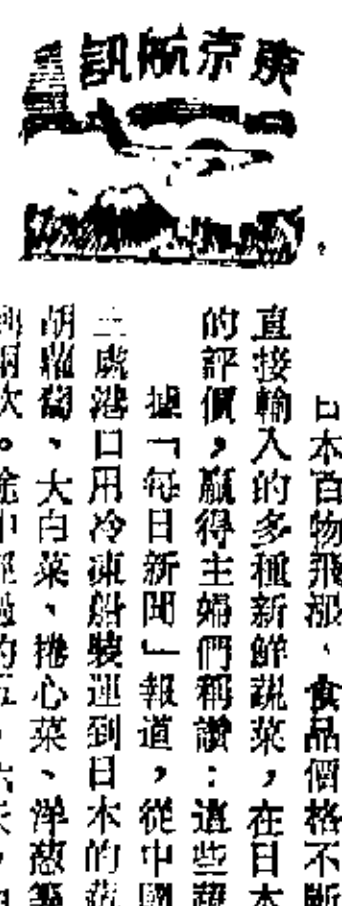 東京航訊
日本百物飛漲、食品價格不斷
直接輸入的多種新鮮蔬菜，在日本
的評價，贏得主婦們稱讚：這些蔬
據「每日新聞」報道，從中國
主處港口用冷凍船裝運到日本的蔬
胡蘿蔔、大白菜、捲心菜、洋葱等
兩次。途中經過的五、六天，由